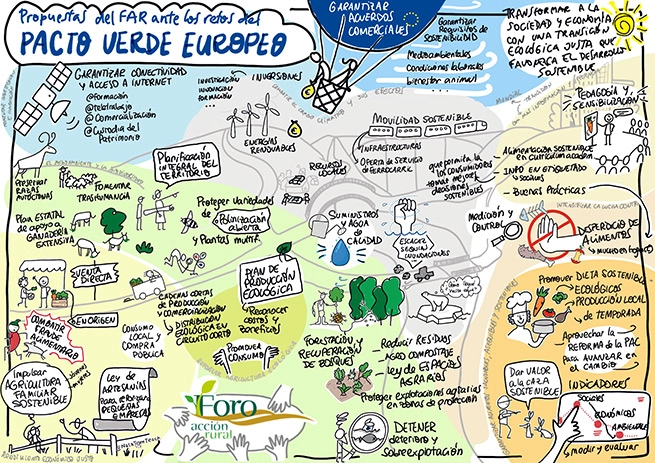 Propuestas del FAR ante los retos del
PACTO VERDE EUROPEO
GARANTIZAR
ACUERDOS
COMERCIALES
GARANTIZAR
REQUISITOS DE
SOSTENIBILIDAD
Medioambientales
Condiciones laborales
bienestar animal
TRANSFORMAR A LA
SOCIEDAD Y ECONOMÍA
CON UNA TRANSICIÓN
ECOLÓGICA JUSTA QUE
FAVOREZCA EL DESARROLLO
SOSTENIBLE
GARANTIZAR CONECTIVIDAD
Y ACCESO A INTERNET
@Formación
@teletrabajo
@Comercialización
@Custodia del
Patrimonio
INVESTIGACIÓN
INNOVACIÓN
FORMACIÓN
INVERSIONES
ENERGÍAS
RENOVABLES
MOVILIDAD SOSTENIBLE
INFRAESTRUCTURAS
OFERTA DE SERVICIO
DE FERROCARRIL
RECURSOS
LOCALES
que permita a
los consumidores
tomar mejores
decisiones
sostenibles
PEDAGOGÍA Y
SENSIBILIZACIÓN
Alimentación sostenible
en currículum académ.
INFO en etiquetado
sociales
Buenas Prácticas
Planificación
INTEGRAL DEL
TERRITORIO
PRESERVAR
RAZAS
AUTÓCTONAS
FOMENTAR
TRASHUMANCIA
PLAN ESTATAL
de apoyo a
GANADERÍA
EXTENSIVA
Proteger variedades
de Polinización
abierta
y Plantas multif.
SUMINISTROS
AGUA
de
CALIDAD
ESCASEZ
SEQUÍA
INUNDACIONES
MEDICIÓN Y
CONTROL
DESPERDICIO DE
ALIMENTOS
VENTA
DIRECTA
EN ORIGEN
COMBATIR
FRAUDE
ALIMENTARIO
CONSUMO
LOCAL Y
COMPRA
PÚBLICA
CADENAS CORTAS
DE PRODUCCIÓN
Y COMERCIALIZACIÓN
DISTRIBUCIÓN
ECOLÓGICA EN
CIRCUITO CORTO
PLAN DE
PRODUCCIÓN
ECOLÓGICA
Reconocer
costes y
beneficios
PROMOVER
CONSUMO
FORESTACIÓN Y
RECUPERACIÓN
DE BOSQUES
Reducir RESIDUOS
AGRO COMPOSTAJE
LEY de ESPACIOS
AGRARIOS
Proteger explotaciones agrarias
en zonas de protección
DETENER
deterioro y
sobreexplotación
Promover DIETA SOSTENIBLE
ECOLÓGICOS
PRODUCCIÓN LOCAL
DE TEMPORADA
Aprovechar la
REFORMA de la PAC
para AVANZAR EN
EL CAMBIO
DAR VALOR
A LA CAZA
SOSTENIBLE
INDICADORES
Sociales
económicos
Ambientales
medir y evaluar
Impulsar
AGRICULTURA
FAMILIAR
SOSTENIBLE
LEY de
ARTESANÍAS
Para reforzar las
PEQUEÑAS
EMPRESAS
Foro
acción
rural